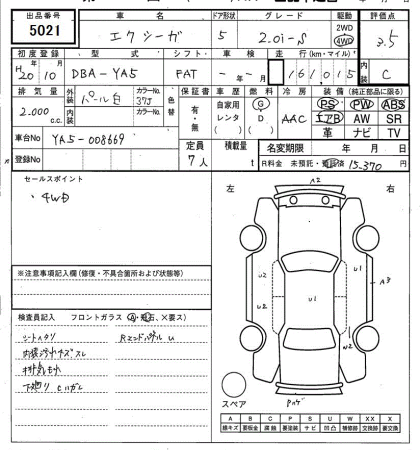 出品番号 車名 ドア形状 グレード 駆動 評価点
5021 エクシーガ 5 2.0i-S 2WD 4WD 3.5
初度登録 型式 シフト 車検 走行(km・マイル) 内装
H20 10 DBA-YA5 FAT - - 161,015 C
排気量 外装 パール白 カラーNo. 37J 色替 保証書 車歴 燃料 冷房 装備(純正部品に限る)
2.000 c.c. 内装 カラーNo. 有・無 自家用 レンタ G D AAC PS PW ABS
エアB AW SR
革 ナビ TV
車台No YA5-008669 定員 7人 積載量 t 名変期限 年 月 日
登録No R料金 未預託・預託済 15,370 円
セールスポイント
・4WD
左 右
A2
U2 U2 U1 U1 A3
W2
※注意事項記入欄(修復・不具合箇所および状態等)
検査員記入 フロントガラス(A・飛石、X要ス)
シートヘタリ RエンドパネルU
内装汚れキズスレ
排気もれ
下廻りCハガレ
スペア
A B C P S U W X XX
線キズ 要板金 腐蝕 要塗装 サビ 凹凸 補修跡 交換跡 要交換